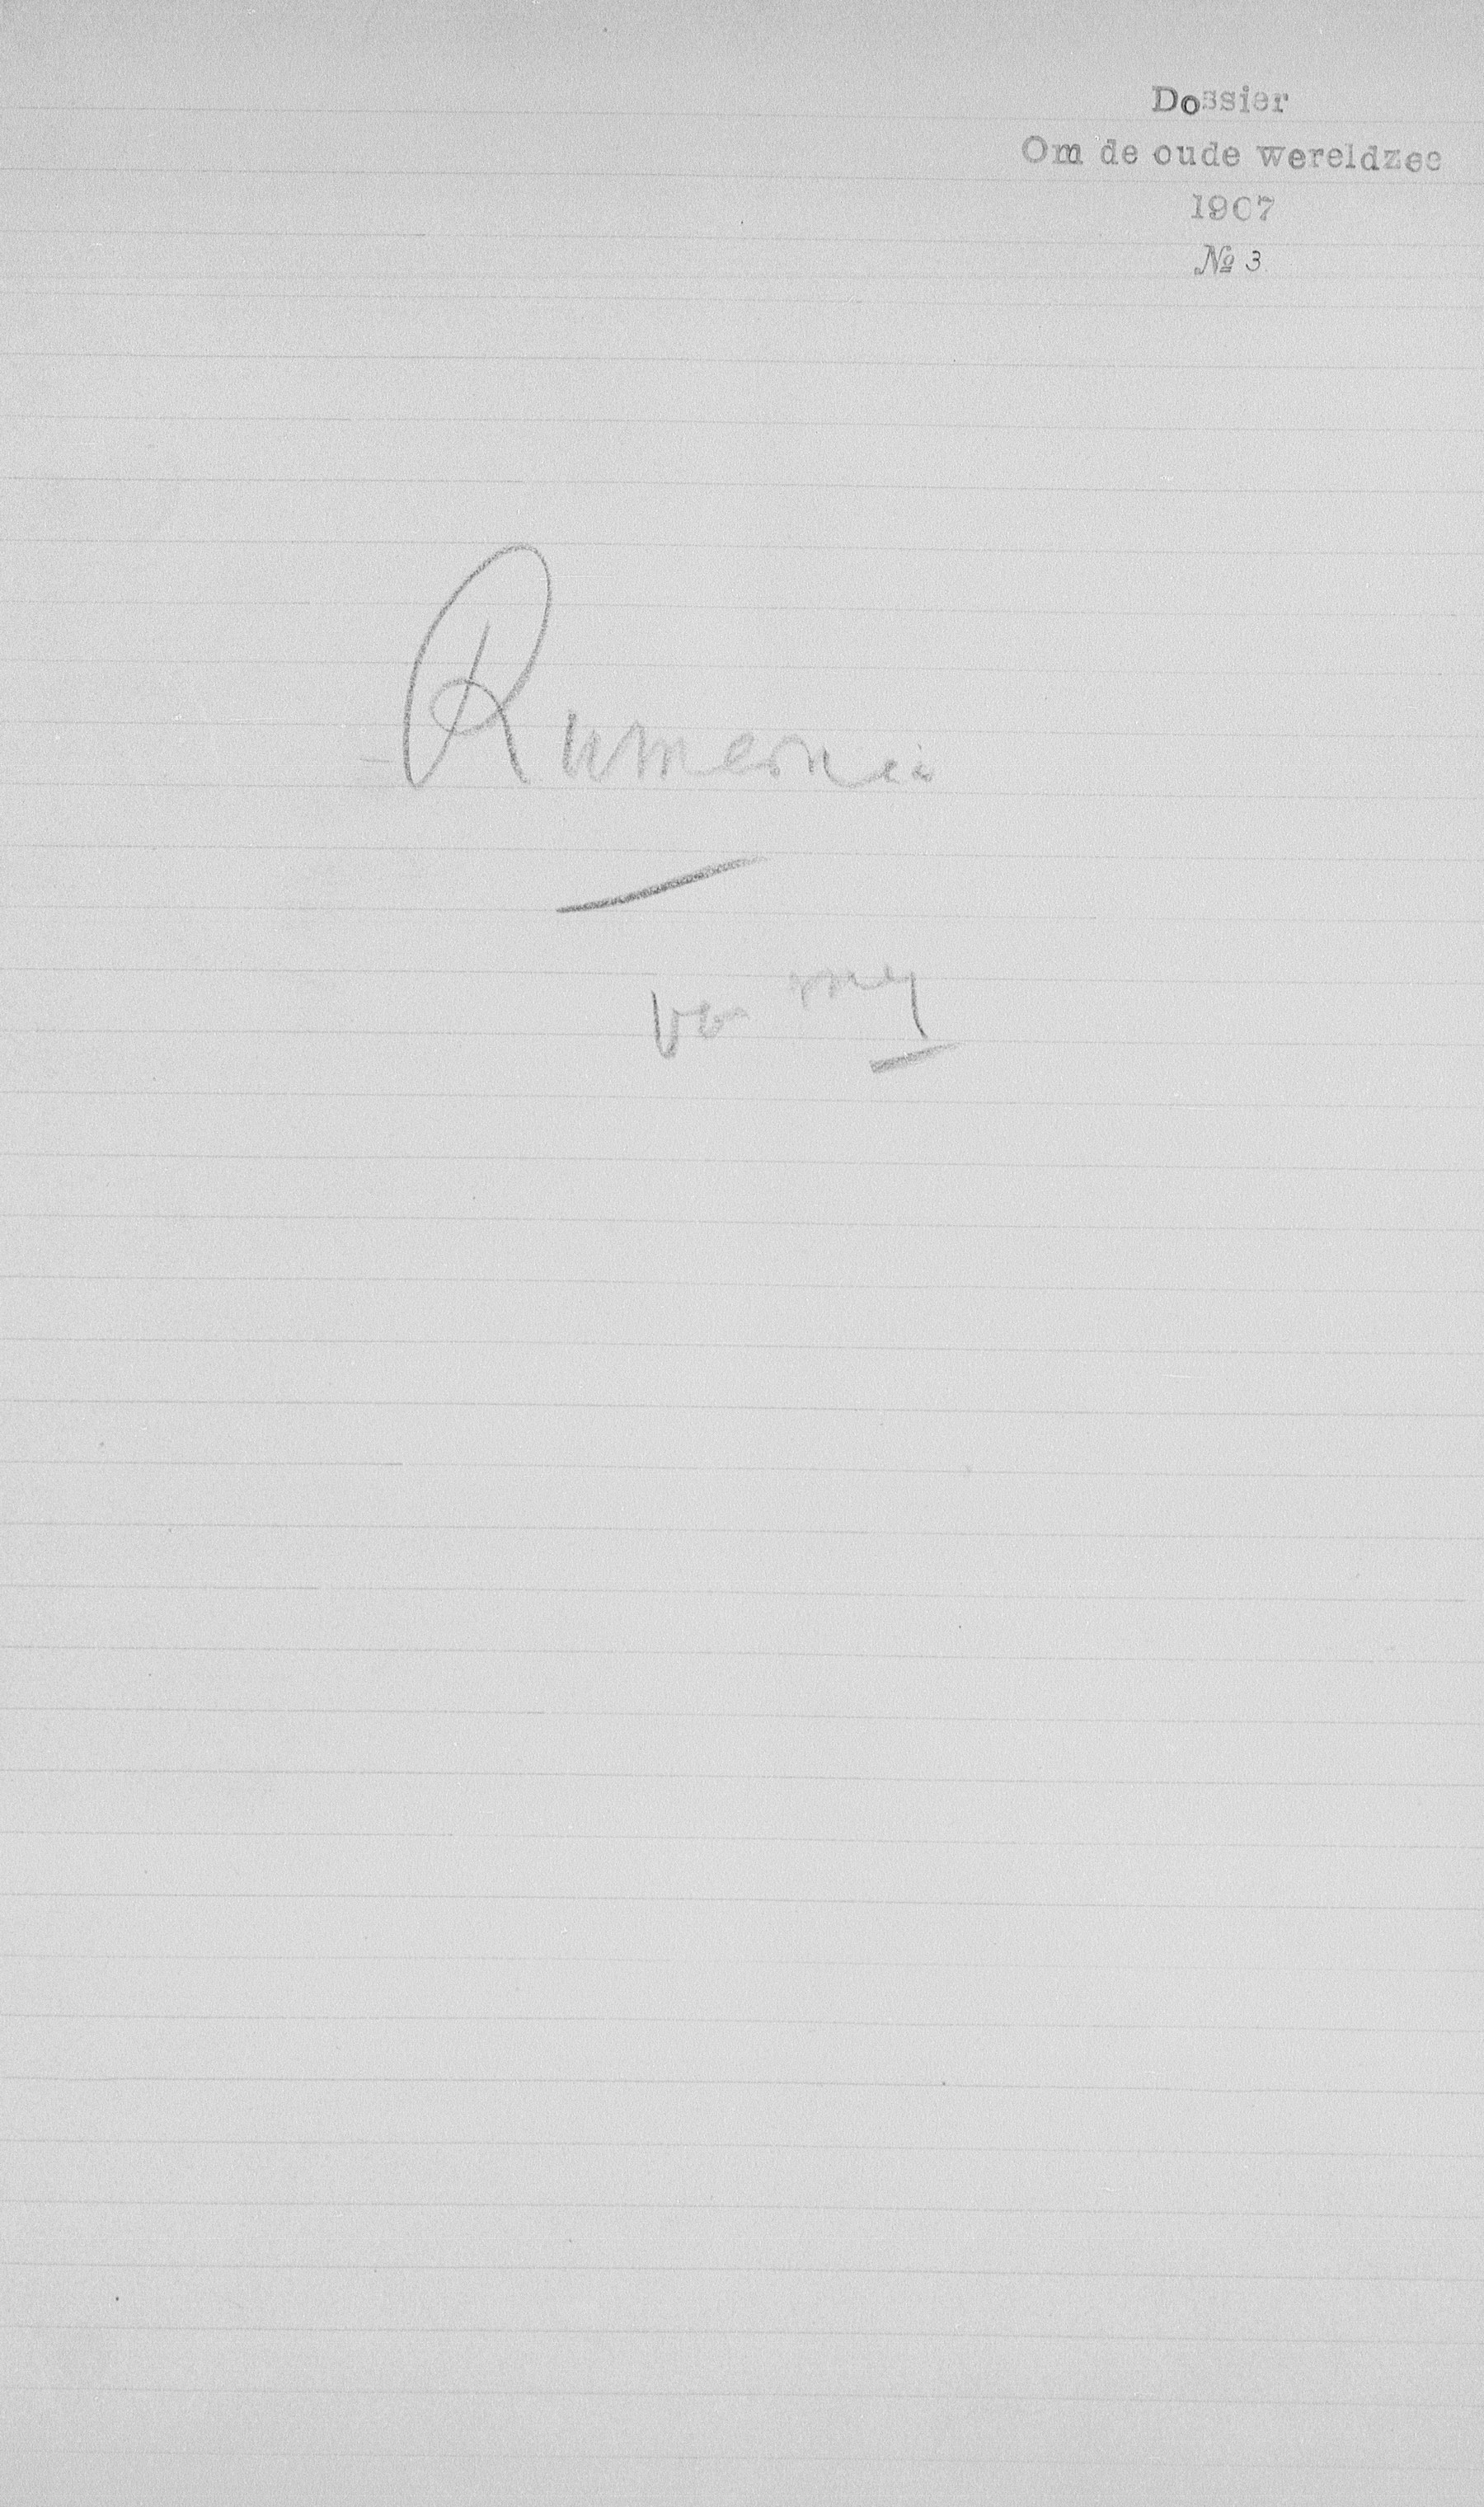 Dossier
Om de oude wereldzee
1907
№ 3
Rumenië
vr mij